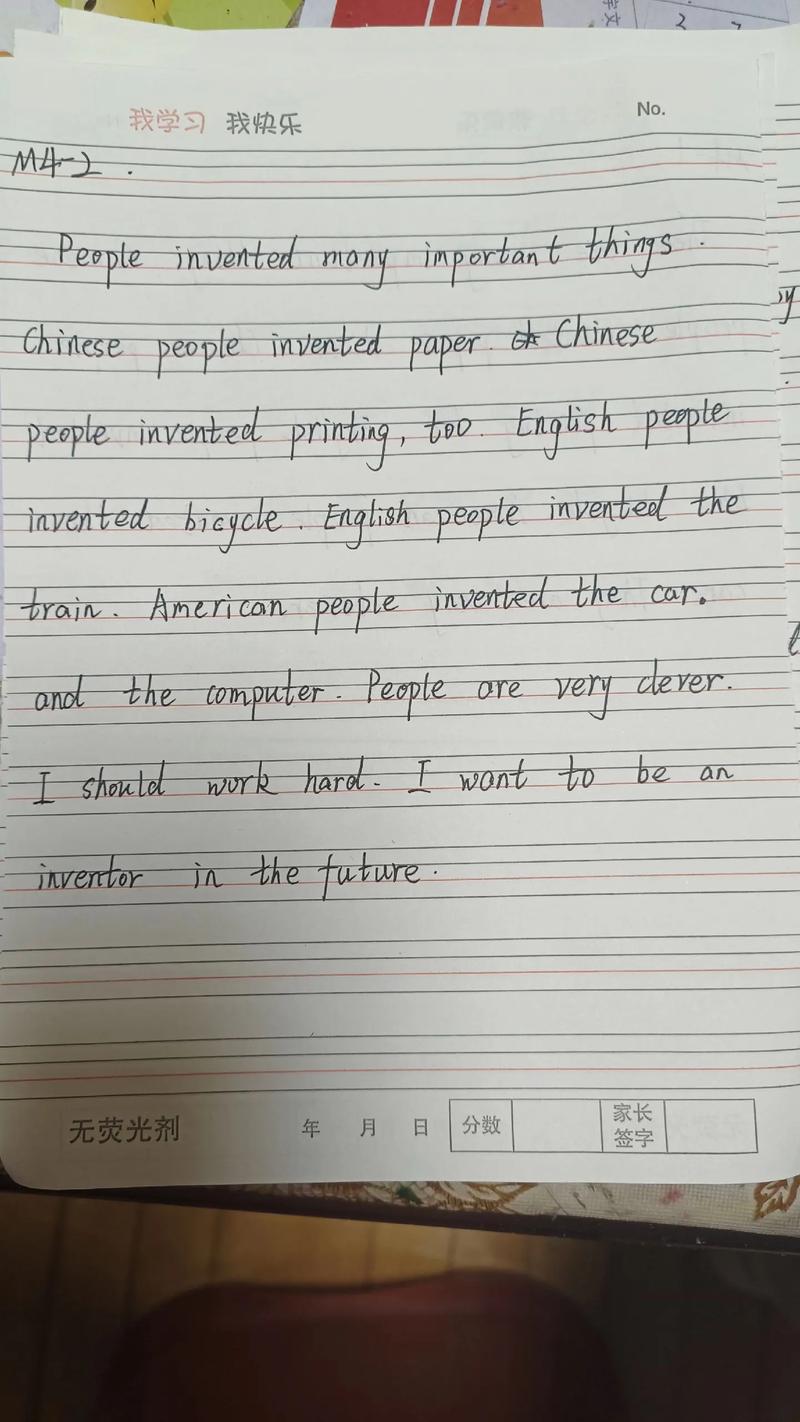 我学习 我快乐 No.
M4-2.
People invented many important things.
Chinese people invented paper. Chinese
people invented printing, too. English people
invented bicycle. English people invented the
train. American people invented the car.
and the computer. People are very clever.
I should work hard. I want to be an
inventor in the future.
无荧光剂 年 月 日 分数 家长
签字